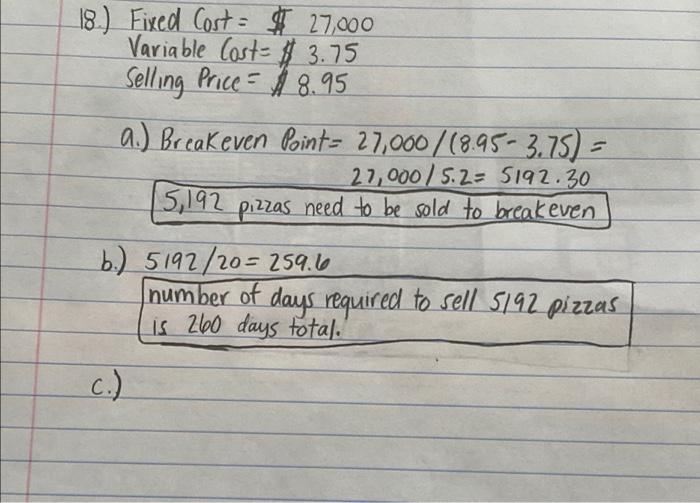 18.) Fixed Cost = $ 27,000
Variable Cost= $ 3.75
Selling Price = $ 8.95
a.) Breakeven Point= 27,000/(8.95-3.75) =
27,000/5.2= 5192.30
5,192 pizzas need to be sold to breakeven
b.) 5192/20=259.6
number of days required to sell 5192 pizzas
is 260 days total.
c.)